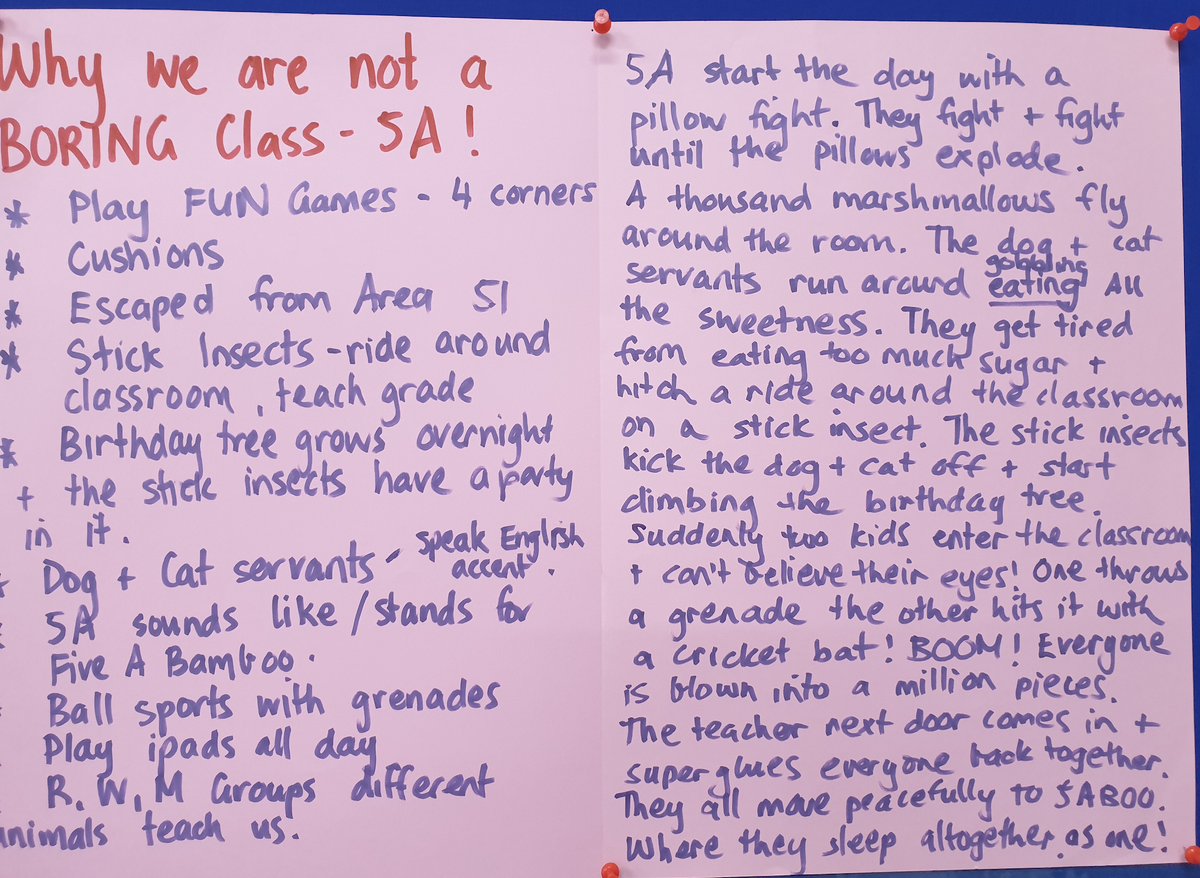 Why we are not a
BORING Class - 5A!
* Play FUN Games - 4 corners
* Cushions
* Escaped from Area 51
* Stick Insects - ride around
classroom, teach grade
* Birthday tree grows overnight
+ the stick insects have a party
in it.
* Dog + Cat servants - speak English
accent.
* 5A sounds like / stands for
Five A Bamboo.
Ball sports with grenades
Play ipads all day
R, W, M Groups different
animals teach us.
5A start the day with a
pillow fight. They fight + fight
until the pillows explode.
A thousand marshmallows fly
around the room. The dog + cat
gobbling
servants run around eating All
the sweetness. They get tired
from eating too much sugar +
hitch a ride around the classroom
on a stick insect. The stick insects
kick the dog + cat off + start
climbing the birthday tree.
Suddenly two kids enter the classroom
+ can't believe their eyes! One throws
a grenade the other hits it with
a cricket bat! BOOM! Everyone
is blown into a million pieces.
The teacher next door comes in +
superglues everyone back together.
They all move peacefully to 5ABOO.
Where they sleep altogether as one!